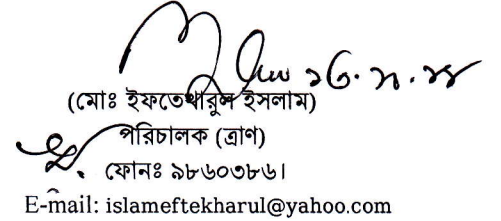 (মোঃ ইফতেখারুল ইসলাম)
পরিচালক (ত্রাণ)
ফোনঃ ৯৮৬০৩৮৬।
E-mail: islameftekharul@yahoo.com